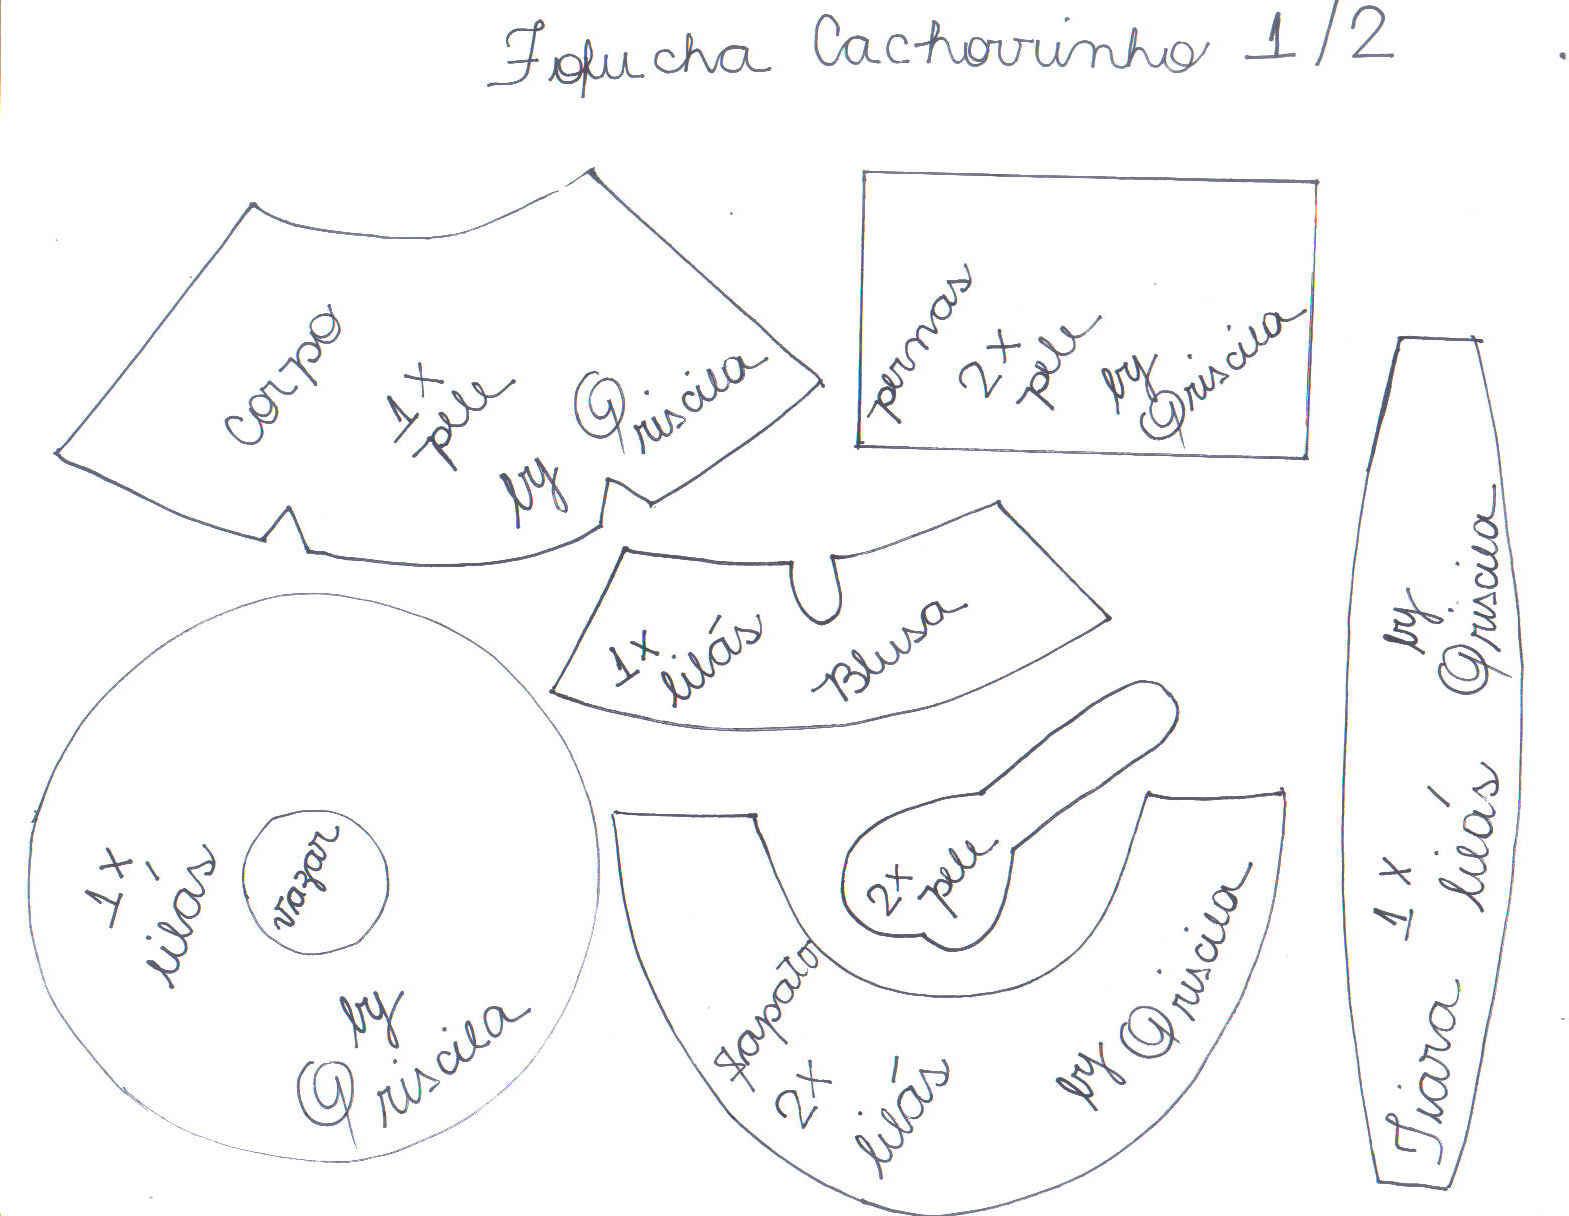 Fofucha Cachorrinho 1/2
corpo
1x
pele
by
Priscila
pernas
2x
pele
by
Priscila
1x
lilás
Blusa
1x
lilás
vazar
by
Priscila
2x
pele
Sapato
2x
lilás
by Priscila
Tiara 1x lilás by Priscila